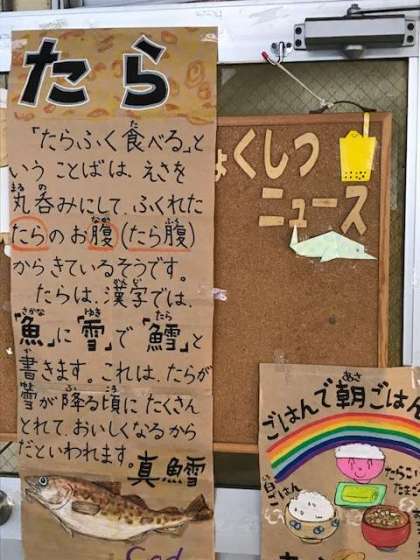 たら
「たらふく食べる」と
いうことばは、えさを
丸呑みにして、ふくれた
たらのお腹(たら腹)
からきているそうです。
たらは、漢字では、
「魚」に「雪」で「鱈」と
書きます。これは、たらが
雪が降る頃にたくさん
とれて、おいしくなるから
だといわれます。
真鱈
Cod
ょくしつ
ニュース
ごはんで朝ごはん
白ごはん
たらこ